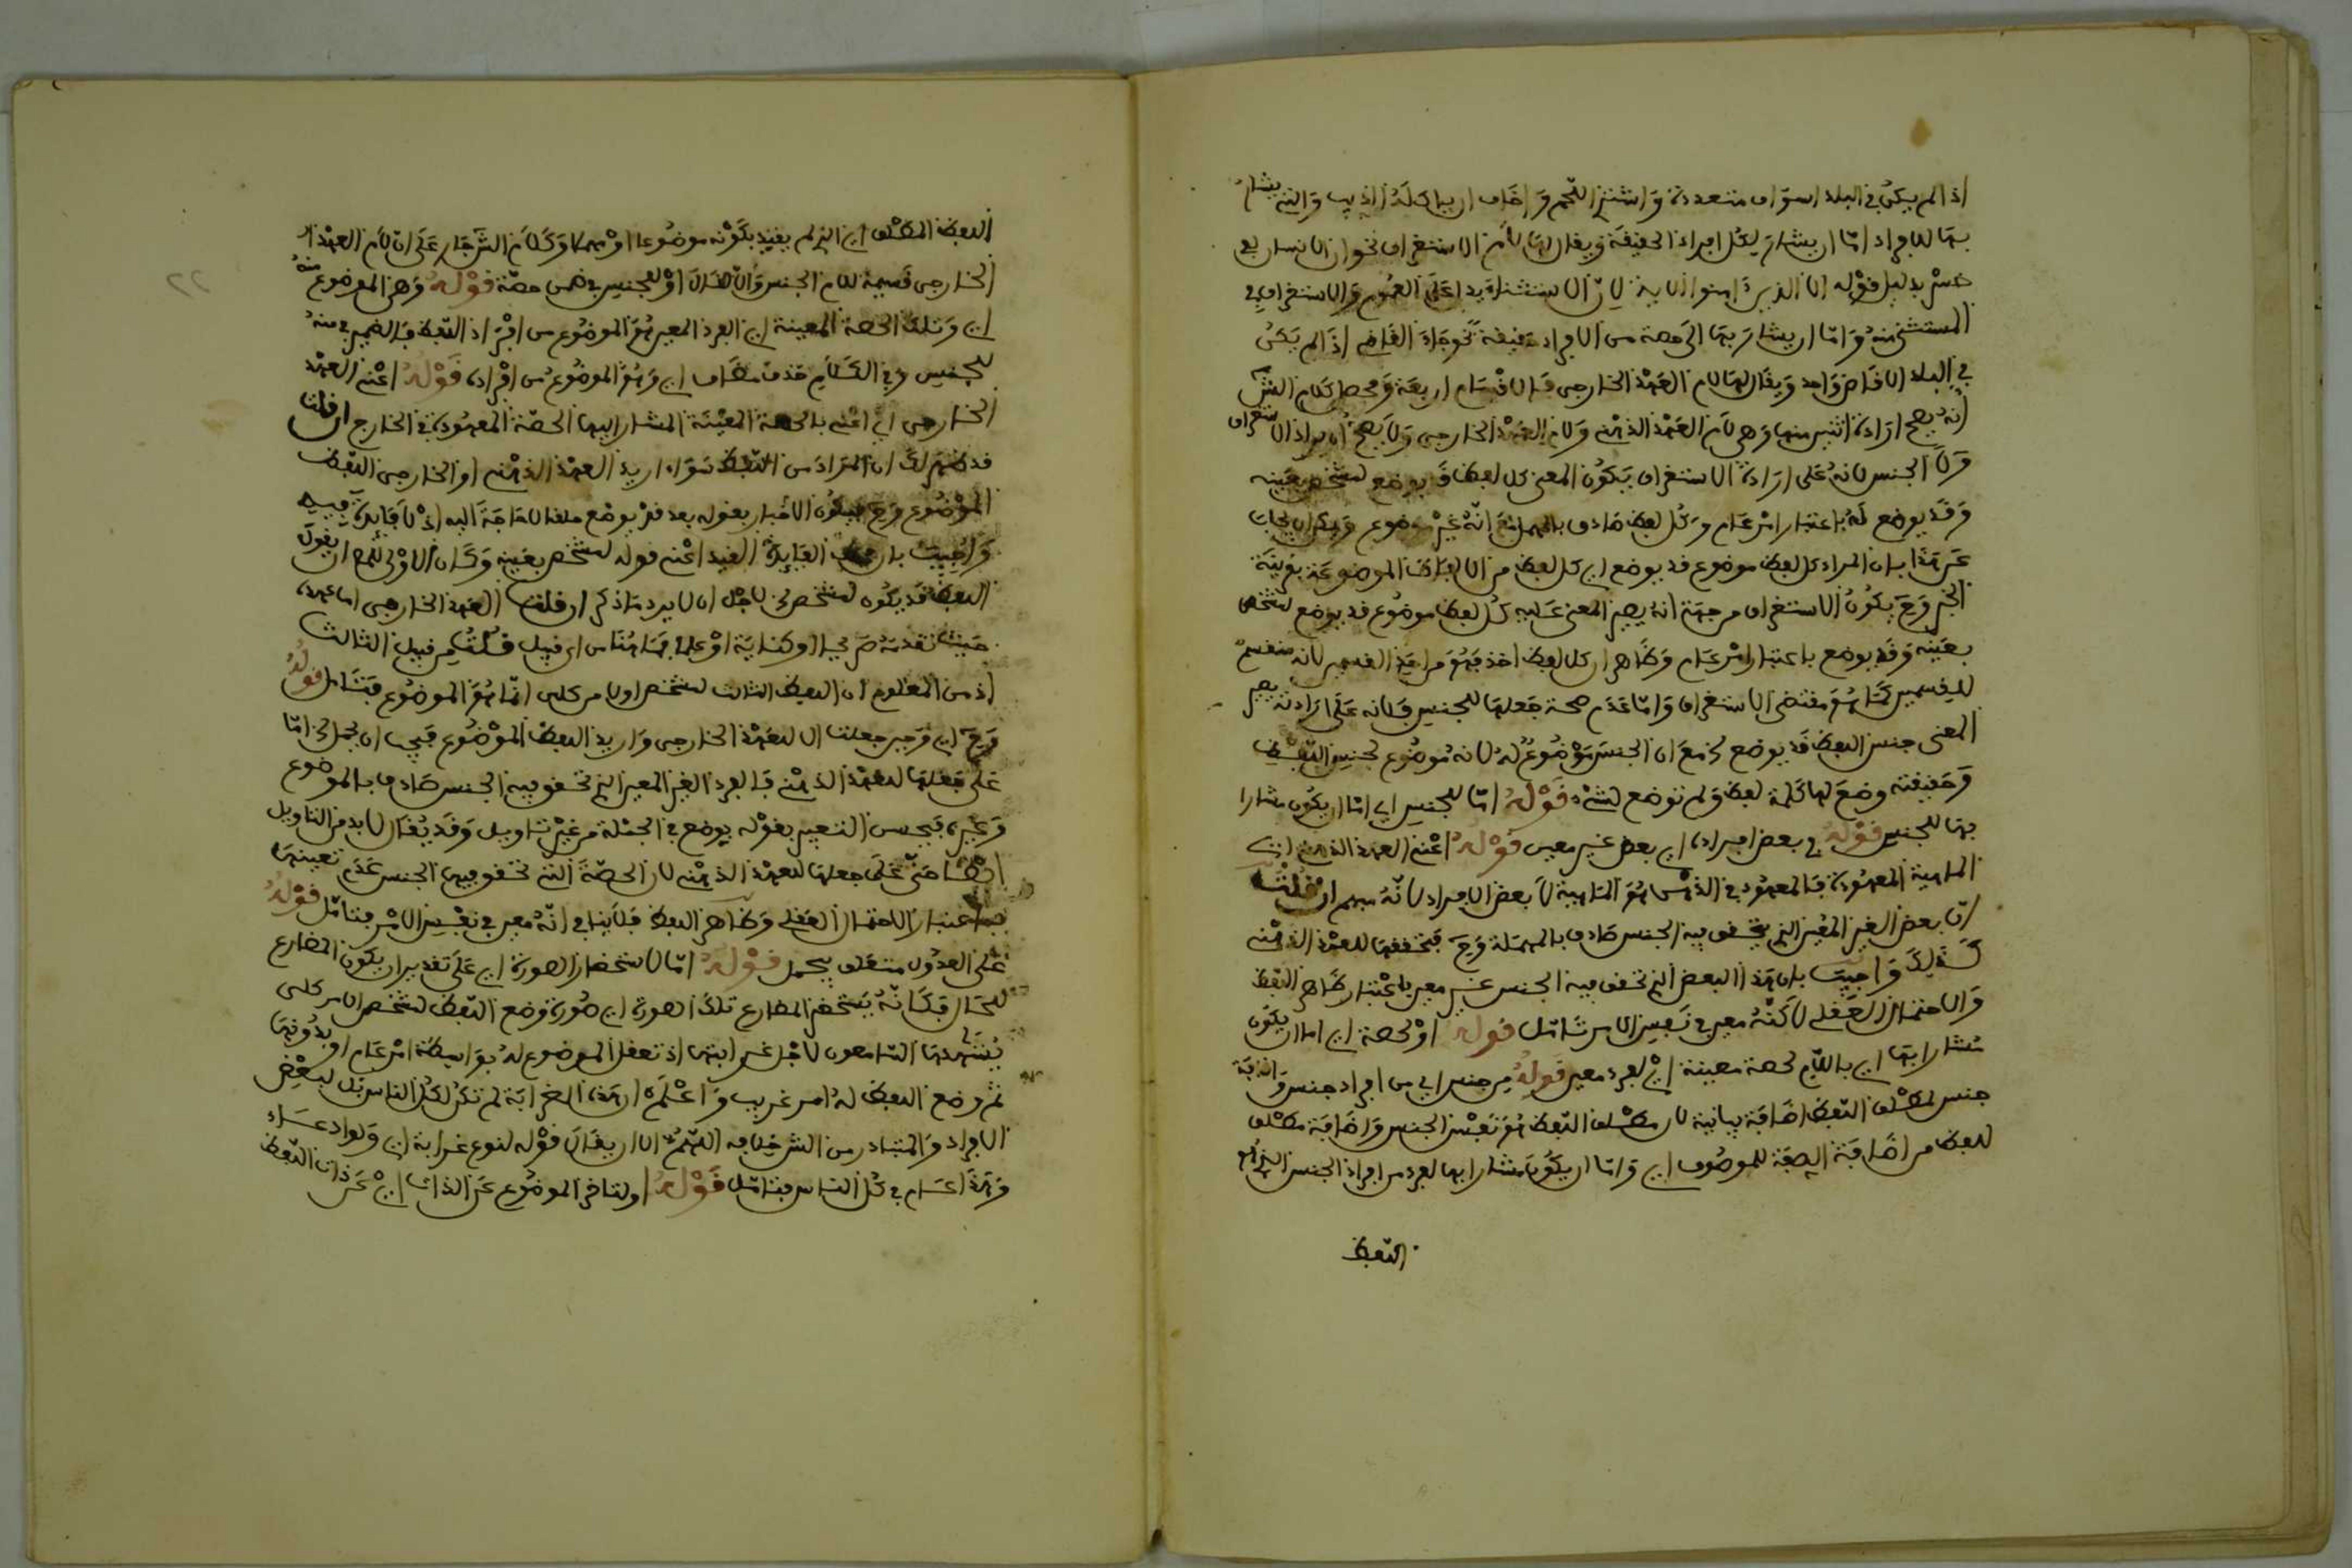 اذا لم يكن في البلد اسواق متعددة واشتر اللحم واخاف ان ياكله الذيب والتي يشار
بها للافراد اما ان يشار لكل افراد الحقيقة ويقال لها لام الاستغراق نحو ان الانسان لفي
خسر بدليل قوله الا الذين ءامنوا الاية لان الاستثناء يدل على العموم والاستغراق في
المستثنى منه واما ان يشار بها الى حصة من الافراد حقيقة نحو جاء القاضي اذا لم يكن
في البلد الا قاض واحد ويقال لها لام العهد الخارجي فالاقسام اربعة ومحصل كلام الش
انه يصح ارادة اثنين منها وهي لام العهد الذهني ولام العهد الخارجي ولا يصح ان يراد الاستغراق
ولا الجنس لانه على ارادة الاستغراق يكون المعنى كل لفظ قد يوضع لشخص بعينه
وقد يوضع له باعتبار امر عام وكل لفظ صادق بالمهمل مع انه غير موضوع ويمكن ان يجاب
عن هذا بان المراد كل لفظ موضوع قد يوضع اي كل لفظ من الالفاظ الموضوعة بقرينة
الخبر وح يكون الاستغراق من جهة انه يصير المعنى عليه كل لفظ موضوع قد يوضع لشخص
بعينه وقد يوضع باعتبار امر عام وظاهر ان كل لفظ اخذ فهو من احد القسمين لا انه منقسم
للقسمين كما هو مقتضى الاستغراق واما عدم صحة جعلها للجنس فلانه على ارادته يصير
المعنى جنس اللفظ قد يوضع الخ مع ان الجنس موضوع له لا انه موضوع لجنس اللفظ
وحقيقته وضع لها كلمة لفظ ولم توضع لشيء قوله اما للجنس اي اما ان يكون مشارا
بها للجنس قوله في بعض افراده اي بعض غير معين قوله اعني العهد الذهني اي
الماهية المعهودة فالمعهود في الذهن هو الماهية لا بعض الافراد لانه مبهم ان قلت
ان بعض الغير المعين الذي يتحقق فيه الجنس صادق بالمهملة وح فتحققها للعهد الذهني
كذلك واجيب بان هذا البعض الذي تحقق فيه الجنس غير معين باعتبار ظاهر اللفظ
والاحتمال العقلي لاكنه معين في نفس الامر تامل قوله او لحصة اي اما ان يكون
مشارا بها اي باللام لحصة معينة اي لفرد معين قوله من جنس اي من افراد جنس واضافة
جنس لمطلق اللفظ اضافة بيانية لان مطلق اللفظ هو نفس الجنس واضافة مطلق
للفظ من اضافة الصفة للموصوف اي واما ان يكون مشارا بها لفرد من افراد الجنس الذي هو
اللفظ
اللفظ المطلق اي الذي لم يقيد بكونه موضوعا او مهملا وكلام الش جار على ان لام العهد
الخارجي قسيمة للام الجنس والا لقال او للجنس في ضمن حصة قوله وهو الموضوع منه
اي وتلك الحصة المعينة اي الفرد المعين هو الموضوع من افراد اللفظ فالضمير في منه
للجنس وفي الكلام حذف مضاف اي وهو الموضوع من افراده قوله اعني العهد
الخارجي اي اعني بالحصة المعينة المشار اليها الحصة المعهودة في الخارج ان قلت
قد ظهر لك ان المراد من اللفظ سواء اريد العهد الذهني او الخارجي اللفظ
الموضوع وح فيكون الاخبار بقوله بعد قد يوضع ملغا لا حاجة اليه اذ لا فايدة فيه
واجيب بان الفايدة القيد اعني قوله لشخص بعينه وكان الاولى للمص ان يقول
اللفظ قد يكون لشخص الخ لاجل ان لا يرد ما ذكر ان قلت العهد الخارجي اما عهده
حيث تقدمه صريحا او كناية او علما فما هنا من اي قبيل قلت من قبيل الثالث
اذ من المعلوم ان اللفظ الثالث لشخص او لامر كلي انما هو الموضوع فتامل قوله
وح اي وحين جعلنا ال للعهد الخارجي واريد اللفظ الموضوع فيجب ان يحمل الخ اما
على جعلها للعهد الذهني فالفرد الغير المعين الذي تحقق فيه الجنس صادق بالموضوع
وغيره فيحسن التعبير بقوله يوضع في الجملة من غير تاويل وقد يقال لا بد من التاويل
ايضا حتى على جعلها للعهد الذهني لان الحصة التي تحقق فيها الجنس عدم تعينها
باعتبار الاحتمال العقلي وظاهر اللفظ فلا ينافي انه معين في نفس الامر فتامل قوله
على العدول متعلق بيحمل قوله اما لاستحضار الصورة اي على تقدير ان يكون المضارع
للحال فكانه يستحضر المضارع تلك الصورة اي صورة وضع اللفظ لشخص او لامر كلي
يشاهدها السامعون لاجل غرابتها اذ تعقل الموضوع له بواسطة امر عام او بدونها
ثم وضع اللفظ له امر غريب واعلم ان هذه الغرابة لم تكن لكل الناس بل لبعض
الافراد والمتبادر من الش خلافه اللهم الا ان يقال قوله لنوع غرابة اي ولو ادعاء
وهذا عام في كل الناس فتامل قوله او لتاخر الموضوع عن الذات اي عن ذات اللفظ